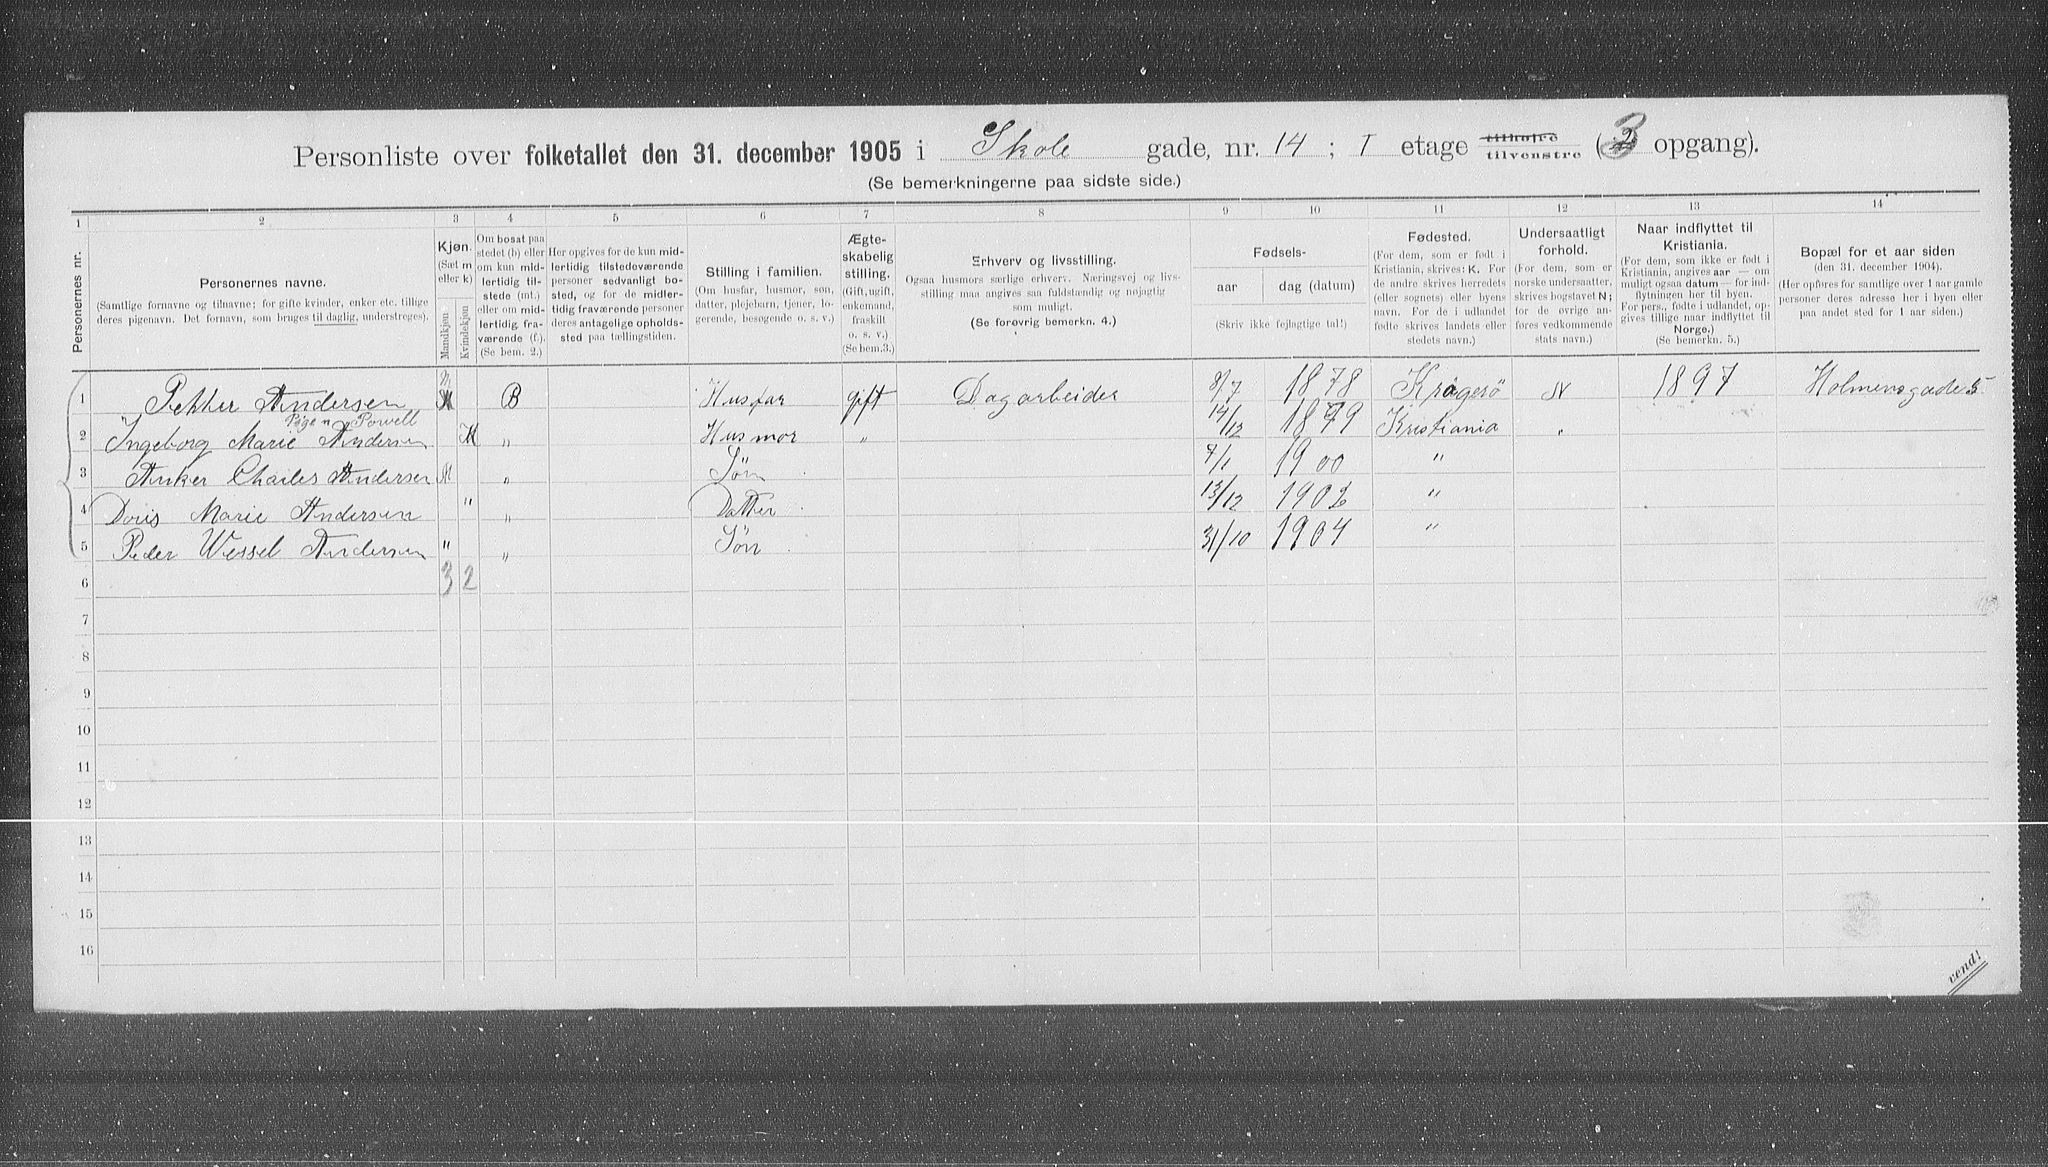 Personliste over folketallet den 31. december 1905 i Skole gade, nr. 14 ; I etage tilhøire tilvenstre (3 opgang).
(Se bemerkningerne paa sidste side.)
1 2 3 4 5 6 7 8 9 10 11 12 13 14
Personernes nr.
Personernes navne.
(Samtlige fornavne og tilnavne; for gifte kvinder, enker etc. tillige
deres pigenavn. Det fornavn, som bruges til daglig, understreges).
Kjøn.
(Sæt m
eller k)
Mandkjøn
Kvindekjøn
Om bosat paa
stedet (b) eller
om kun mid-
lertidig til-
stede (mt.)
eller om mid-
lertidig fra-
værende (f.).
(Se bem. 2.)
Her opgives for de kun mid-
lertidig tilstedeværende
personer sedvanligt bo-
sted, og for de midler-
tidig fraværende personer
deres antagelige opholds-
sted paa tællingstiden.
Stilling i familien.
(Om husfar, husmor, søn,
datter, plejebarn, tjener, lo-
gerende, besøgende o. s. v.)
Ægte-
skabelig
stilling.
(Gift, ugift,
enkemand,
fraskilt
o. s. v.)
(Se bem.3.)
Erhverv og livsstilling.
Ogsaa husmors særlige erhverv. Næringsvej og livs-
stilling maa angives saa fuldstændig og nøjagtig
som muligt.
(Se forøvrig bemerkn. 4.)
Fødsels-
aar dag (datum)
(Skriv ikke fejlagtige tal!)
Fødested.
(For dem, som er født i
Kristiania, skrives: K. For
de andre skrives herredets
(eller sognets) eller byens
navn. For de i udlandet
fødte skrives landets eller
stedets navn.)
Undersaatligt
forhold.
(For dem, som er
norske undersaatter,
skrives bogstavet N;
for de øvrige an-
føres vedkommende
stats navn.)
Naar indflyttet til
Kristiania.
(For dem, som ikke er født i
Kristiania, angives aar — om
muligt ogsaa datum — for ind-
flytningen her til byen.
For pers., fødte i udlandet, op-
gives tillige naar indflyttet til
Norge.)
(Se bemerkn. 5.)
Bopæl for et aar siden
(den 31. december 1904).
(Her opføres for samtlige over 1 aar gamle
personer deres adresse her i byen eller
paa andet sted for 1 aar siden.)
1 Petter Andersen m B Husfar gift Dagarbeider 8/7 1878 Kragerö N 1897 Holmensgade 5
Pige n Powell
2 Ingeborg Marie Andersen K " Husmor " 14/12 1879 Kristiania "
3 Anker Charles Andersen M " Søn 7/1 1900 "
4 Doris Marie Andersen " " Datter 13/12 1902 "
5 Peder Wessel Andersen " " Søn 31/10 1904 "
6 3 2
7
8
9
10
11
12
13
14
15
16
vend!